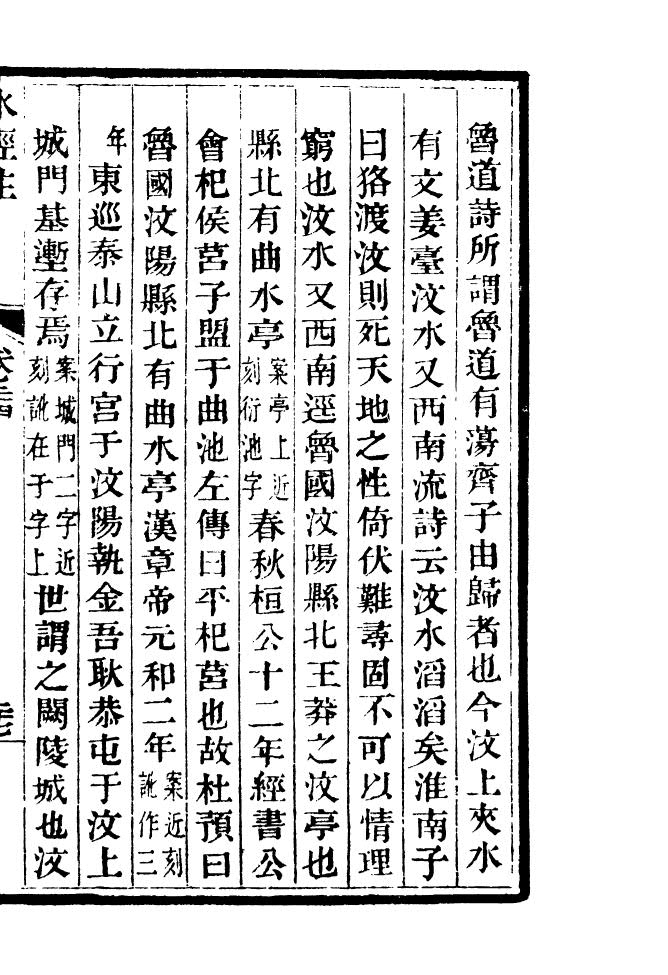 魯道詩所謂魯道有蕩齊子由歸者也今汶上夾水
有文姜臺汶水又西南流詩云汶水滔滔矣淮南子
曰狢渡汶則死天地之性倚伏難尋固不可以情理
窮也汶水又西南逕魯國汶陽縣北王莽之汶亭也
縣北有曲水亭案亭上近刻衍池字春秋桓公十二年經書公
會杞侯莒子盟于曲池左傳曰平杞莒也故杜預曰
魯國汶陽縣北有曲水亭漢章帝元和二年案近刻訛作三
年東巡泰山立行宮于汶陽執金吾耿恭屯于汶上
城門基壍存焉案城門二字近刻訛在于字上世謂之闕陵城也汶
水經注